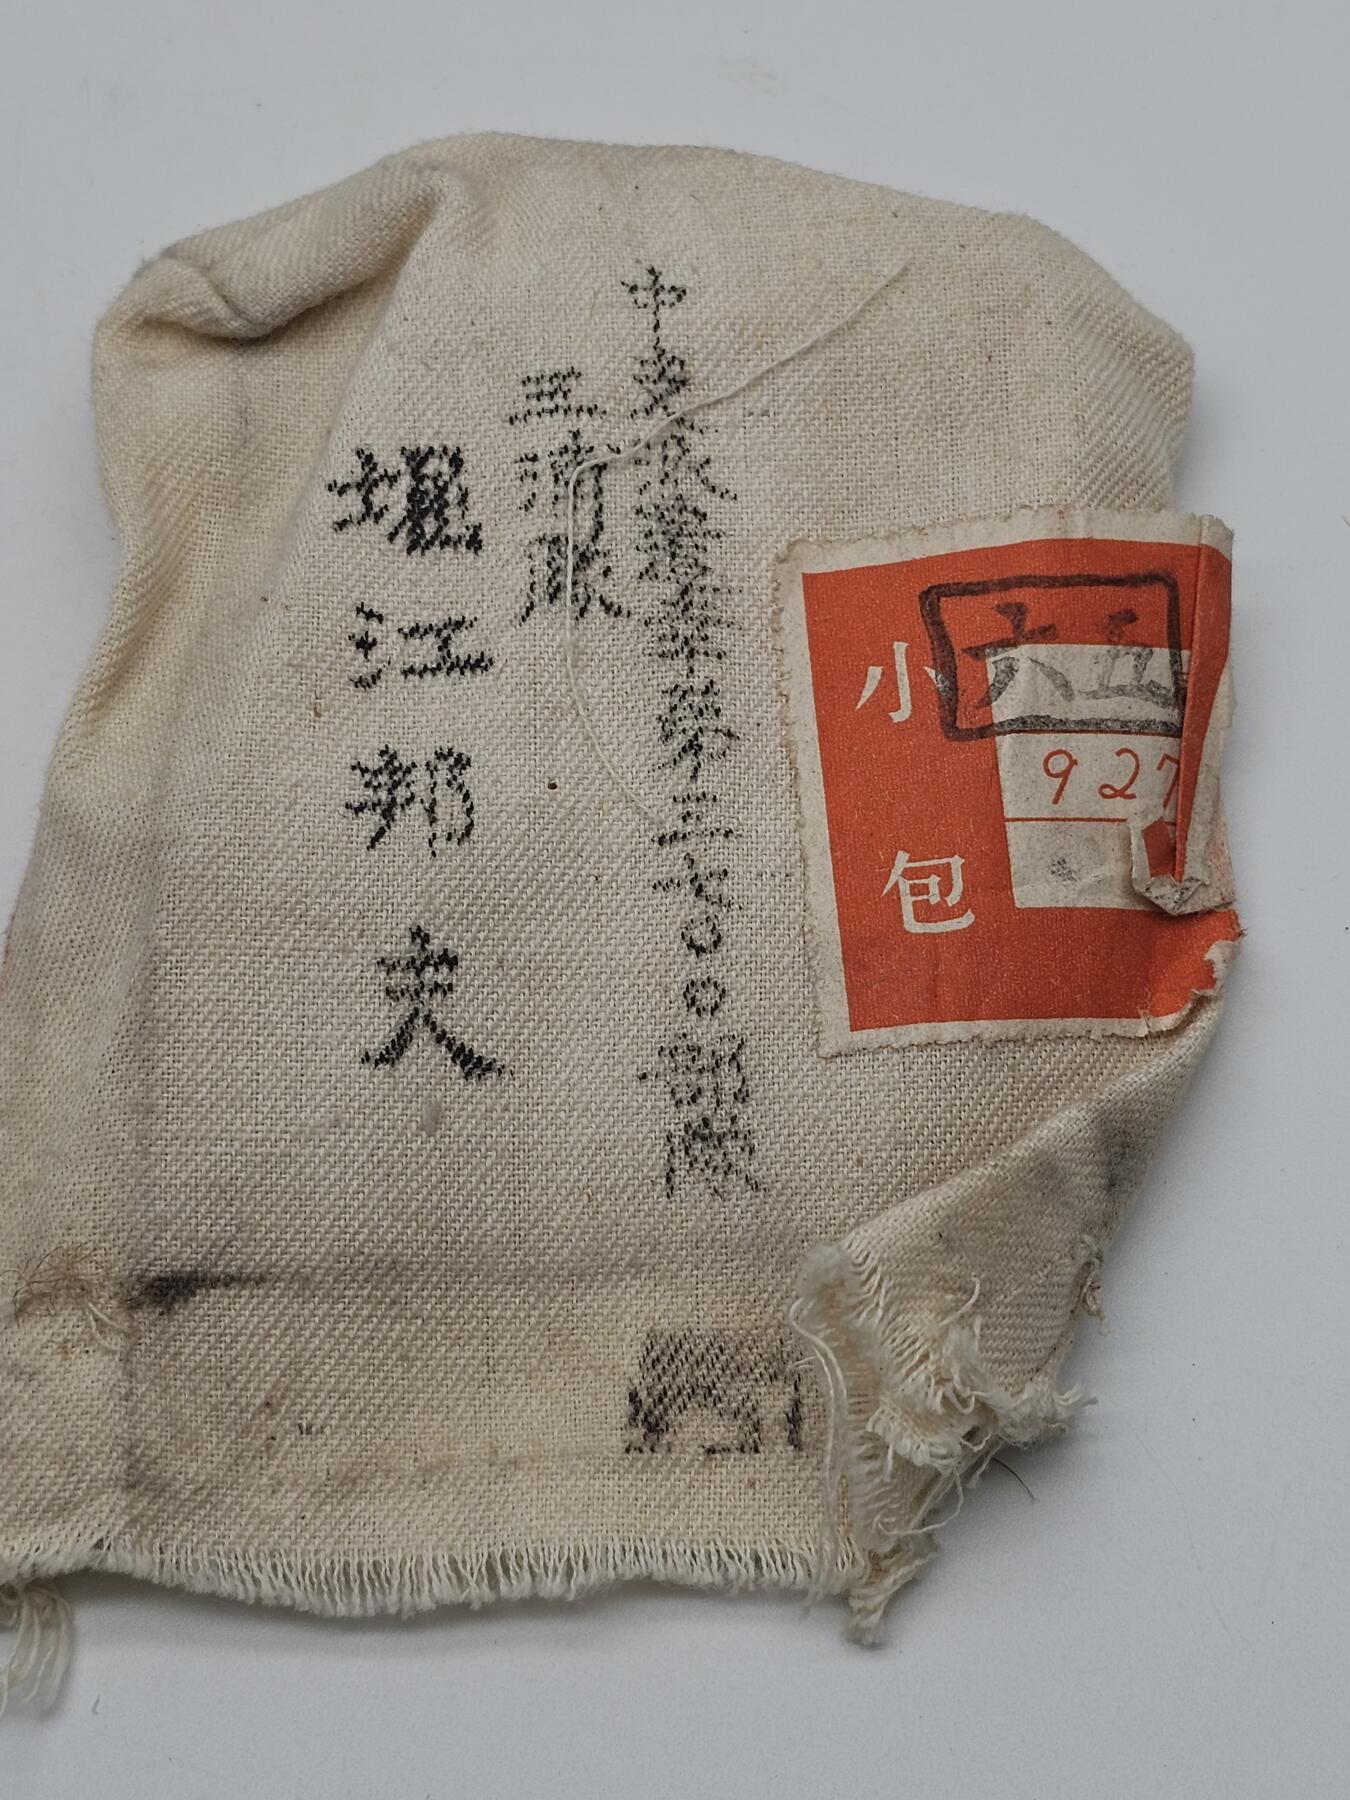 小包
927
中支派遣軍第三七〇〇部隊
三浦隊
堀江邦夫